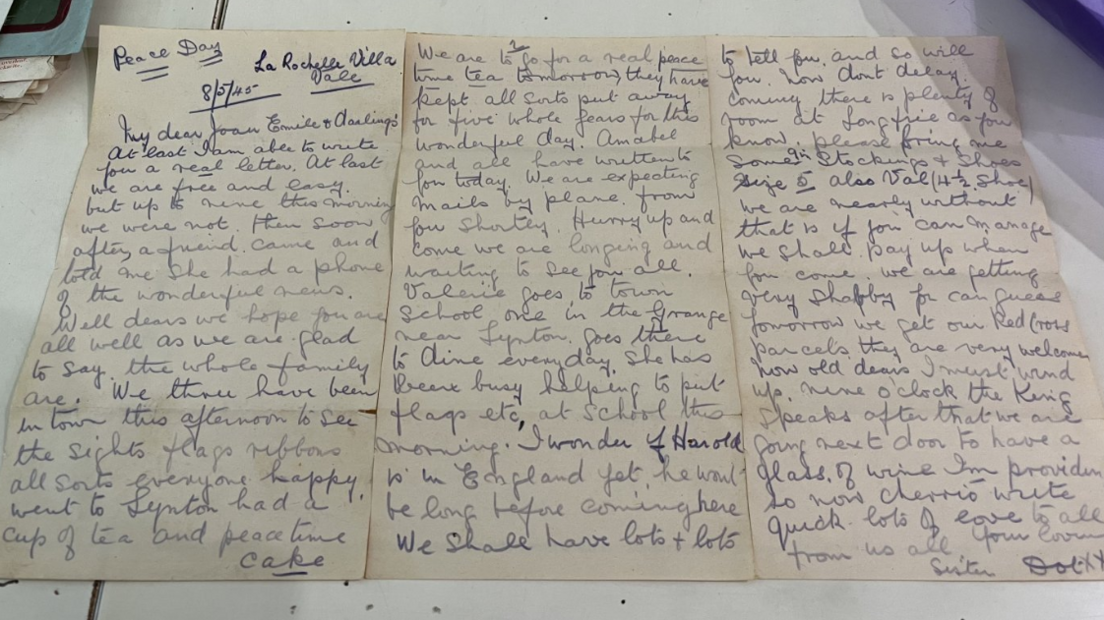 Peace Day
La Rochelle Villa
Vale
8/5/45
My dear Joan Emile & darlings
At last I am able to write
you a real letter. At last
we are free and easy.
but up to nine this morning
we were not. Then soon
after, a friend came and
told me she had a phone
of the wonderful news.
Well dears we hope you are
all well as we are glad
to say, the whole family
are. We three have been
in town this afternoon to see
the sights flags ribbons
all sorts everyone happy.
went to Lynton had a
cup of tea and peacetime
cake
We are to go for a real peace
time tea tomorrow, they have
kept all sorts put away
for five whole years for this
wonderful day. Amabel
and all have written to
you today. We are expecting
mails by plane from
you shortly. Hurry up and
come we are longing and
waiting to see you all.
Valerie goes to town
School one in the Grange
near Lynton. goes there
to dine everyday. She has
been busy helping to put
flags etc, at School this
morning. I wonder if Harold
is in England yet, he wont
be long before coming here
We shall have lots + lots
to tell you. and so will
you. now dont delay.
coming there is plenty of
room at Longfrie as you
know, please bring me
some Stockings + Shoes
size 5 also Val (4½ Shoe)
we are nearly without
that is if you can manage
we shall pay up when
you come. we are getting
very shabby you can guess
tomorrow we get our Red Cross
parcels, they are very welcome
now old dears I must wind
up. nine o'clock the King
speaks after that we are
going next door to have a
glass of wine Im providin
so now cherrio write
quick lots of love to all
from us all your lovin
Sister Dot XX